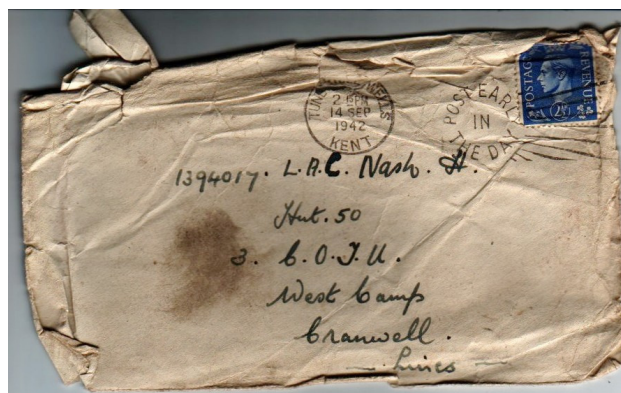 TUNBRIDGE WELLS
2 15PM
14 SEP
1942
KENT
POST EARLY
IN
THE DAY
POSTAGE
REVENUE
2½
1394017. L.A.C. Nash. H.
Hut. 50
3. C.O.T.U.
West Camp
Cranwell.
— Lincs —